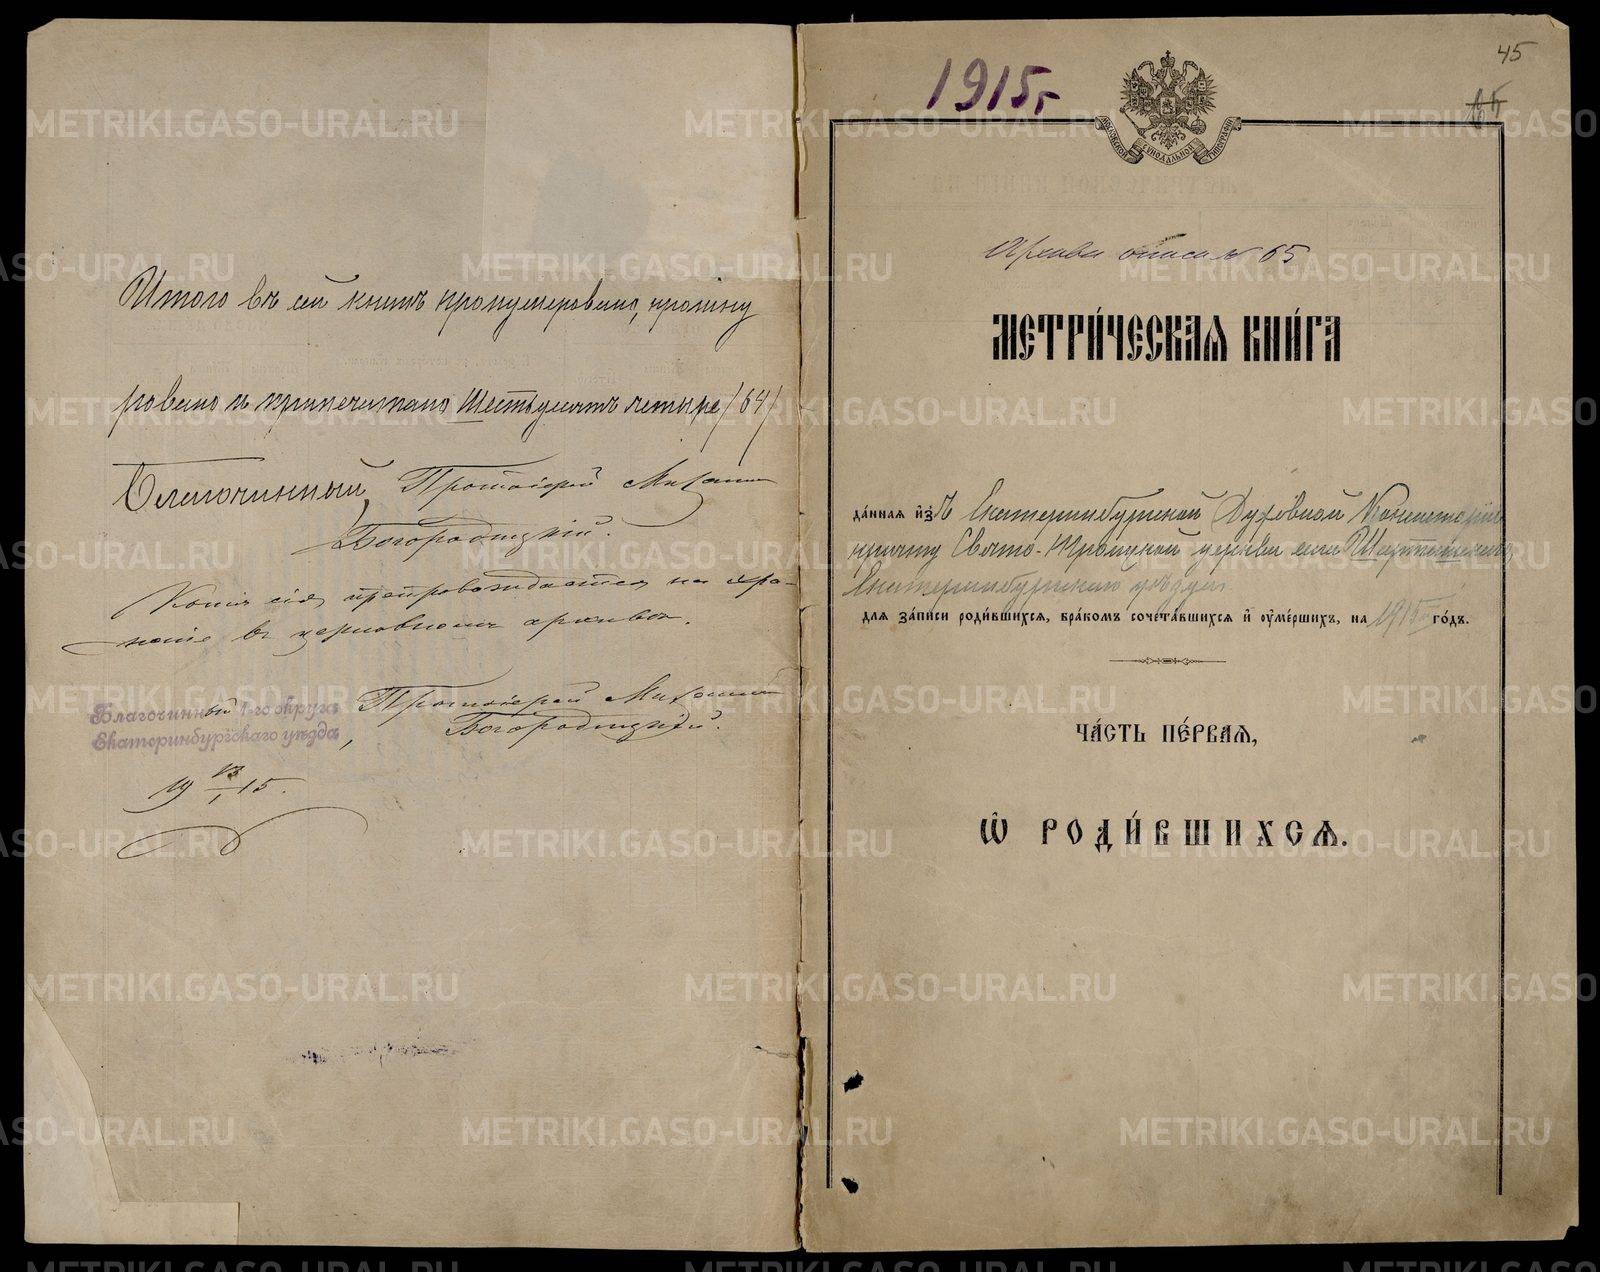 Итого въ сей книгѣ пронумеровано, прошну
ровано и припечатано Шестьдесятъ четыре /64/
Благочинный, Протоіерей Михаилъ
Богородицкій.
Копія сія препровождается на хра-
неніе въ церковномъ архивѣ.
Благочинный 1-го округа
Екатеринбургскаго уѣзда
, Протоіерей Михаилъ
Богородицкій.
19 /1 15.
45
1915г
МОСКОВСКОЙ СУНОДАЛЬНОЙ ТИПОГРАФІИ
Архива описи № 65
МЕТРИ́ЧЕСКАѦ КНИ́ГА
да́ннаѧ и҆зъ Екатеринбургской Духовной Консисторіи
причту Свято-Троицкой церкви села Шарташскаго,
Екатеринбургскаго уѣзда
для за́писи роди́вшихсѧ, бра́комъ сочета́вшихсѧ и҆ оу҆ме́ршихъ, на 1915 го́дъ.
ЧА́СТЬ ПЕ́РВАѦ,
Ѡ҆ РОДИ́ВШИХСѦ.
METRIKI.GASO-URAL.RU